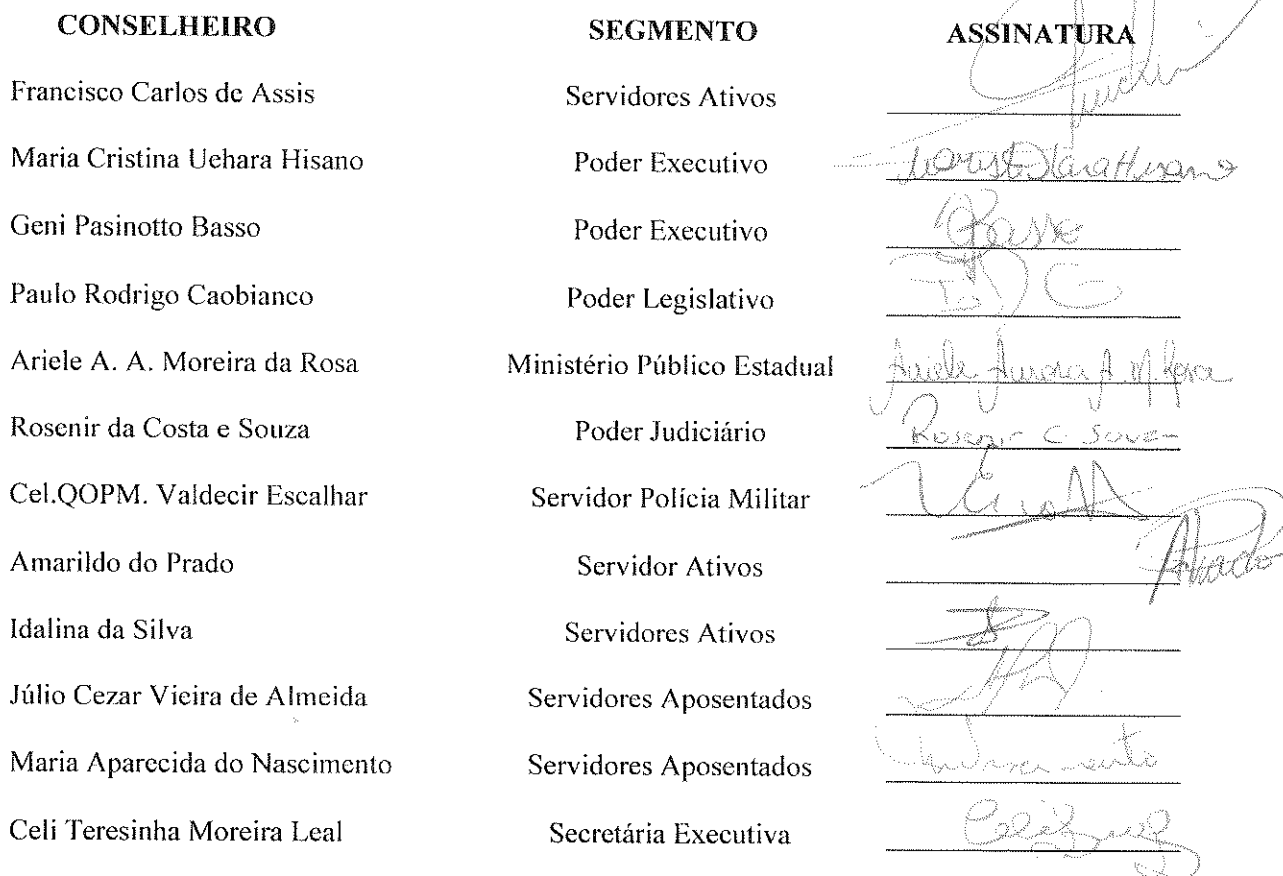 CONSELHEIRO SEGMENTO ASSINATURA
Francisco Carlos de Assis Servidores Ativos
Maria Cristina Uehara Hisano Poder Executivo
Geni Pasinotto Basso Poder Executivo Basso
Paulo Rodrigo Caobianco Poder Legislativo
Ariele A. A. Moreira da Rosa Ministério Público Estadual Ariele Aurora A. M. Rosa
Rosenir da Costa e Souza Poder Judiciário Rosenir C. Souza
Cel.QOPM. Valdecir Escalhar Servidor Polícia Militar
Amarildo do Prado Servidor Ativos Prado
Idalina da Silva Servidores Ativos
Júlio Cezar Vieira de Almeida Servidores Aposentados
Maria Aparecida do Nascimento Servidores Aposentados
Celi Teresinha Moreira Leal Secretária Executiva